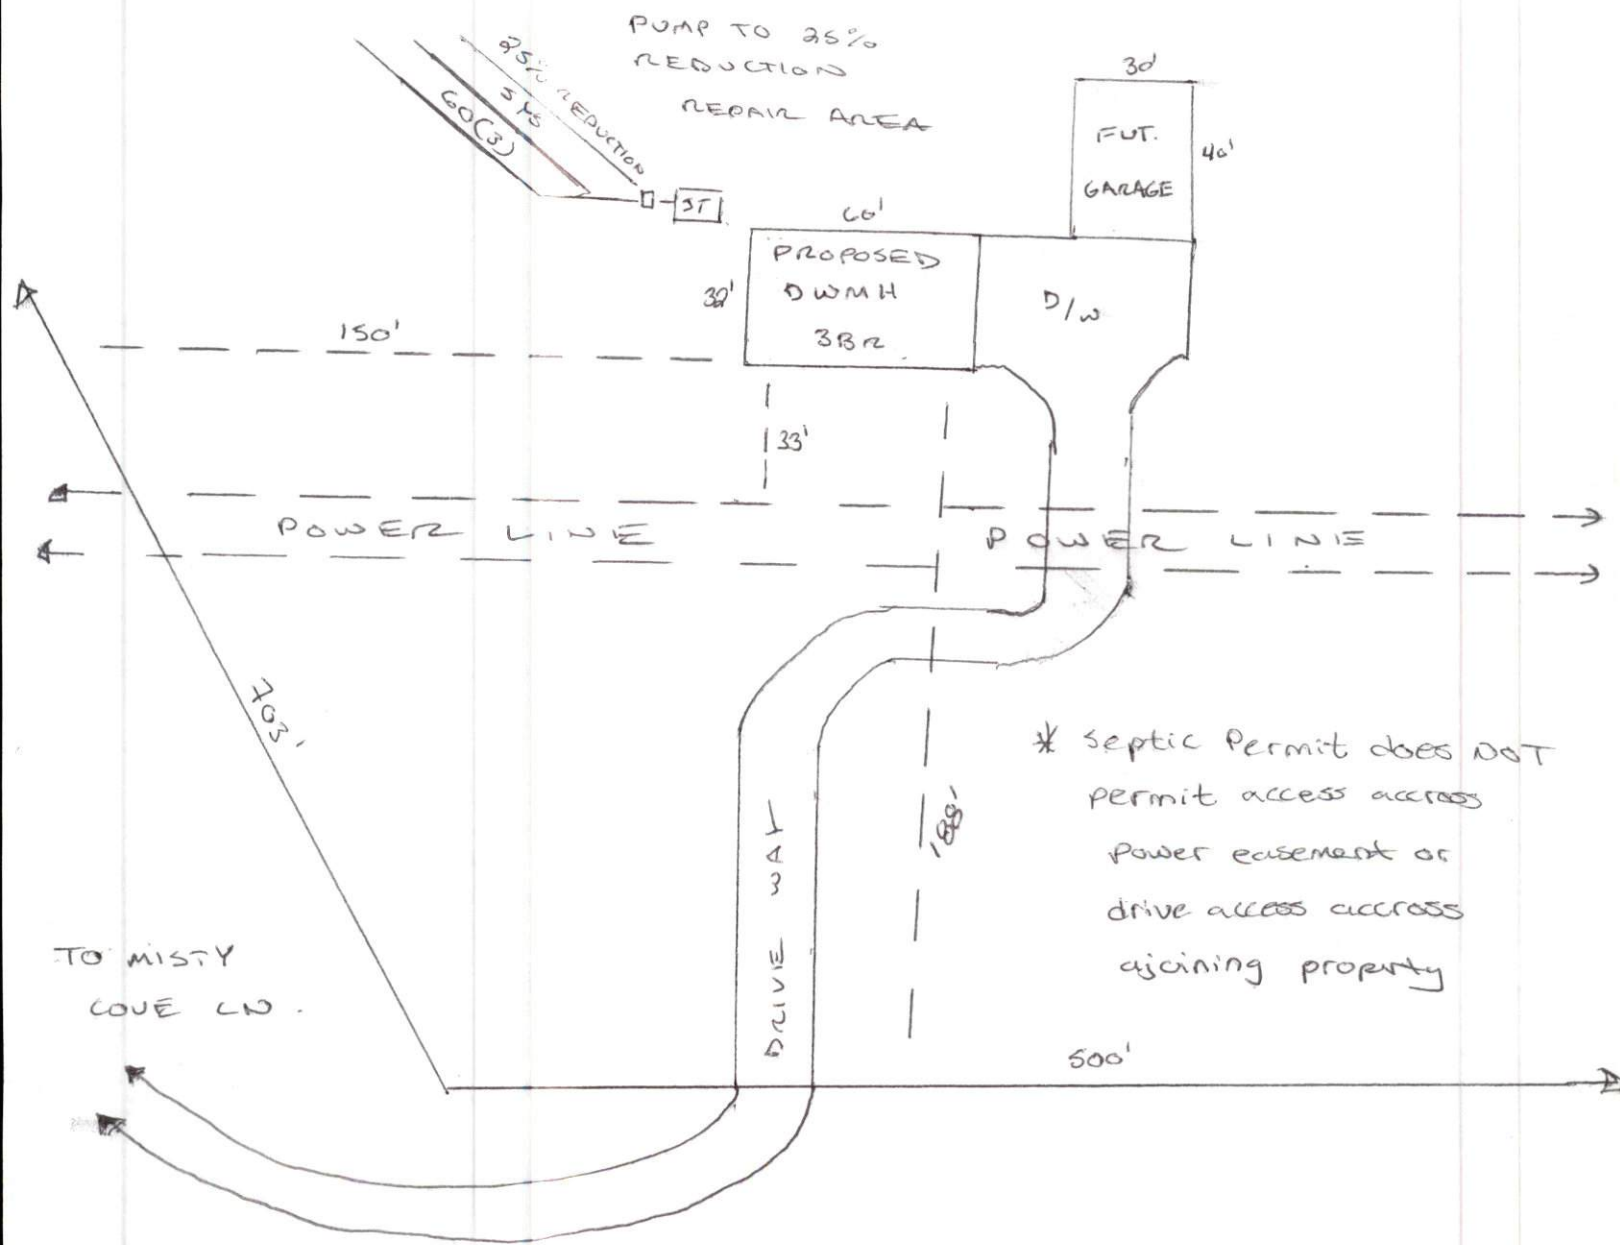 PUMP TO 25%
REDUCTION
REPAIR AREA
25% REDUCTION
SYS
60(3)
ST
30'
FUT.
GARAGE
40'
60'
PROPOSED
DWMH
3BR
32'
D/W
150'
33'
POWER LINE
POWER LINE
703'
188'
* Septic Permit does NOT
permit access accross
Power easement or
drive access accross
ajoining property
DRIVE WAY
TO MISTY
COVE LN.
500'